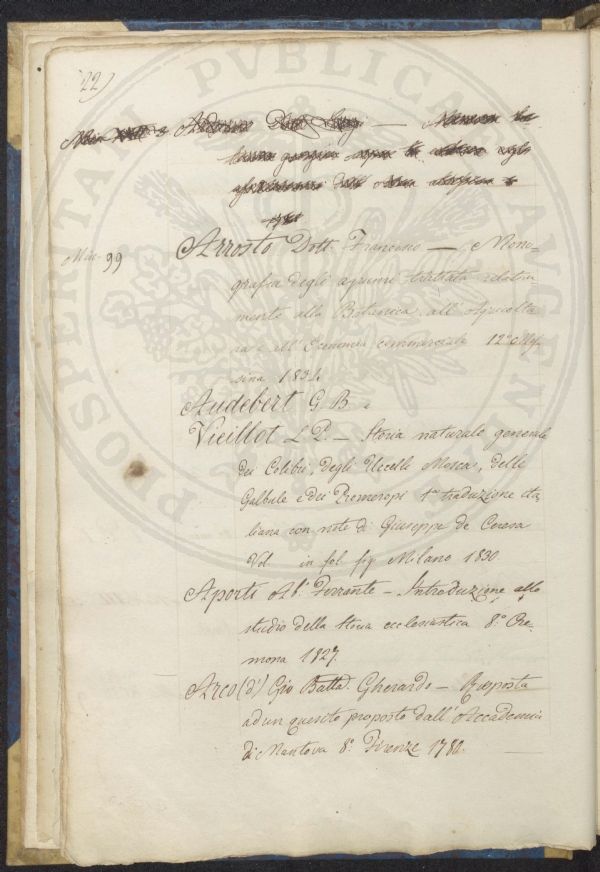 22)
Arrosto Dott. Francesco — Mono-
Misc. 99
grafia degli agrumi trattata relativa-
mente alla Botanica, all' Agricoltu
ra e all' Economia commerciale 12° Mes
sina 1834
Audebert G B e
Vieillot L P. — Storia naturale generale
dei Colibrì, degli Uccelli Mosca, delle
Galbule e dei Promeropi 1a traduzione ita
liana con note di Giuseppe de Cerava
Vol in fol fig Milano 1830
Aporti Ab. Ferrante — Introduzione allo
studio della Storia ecclesiastica 8.° Cre-
mona 1827.
Arco (d') Gio Batta. Gherardo — Risposta
ad un quesito proposto dall' Accademia
di Mantova 8.° Firenze 1780.
PROSPERITATI PVBLICAE AVGENDAE